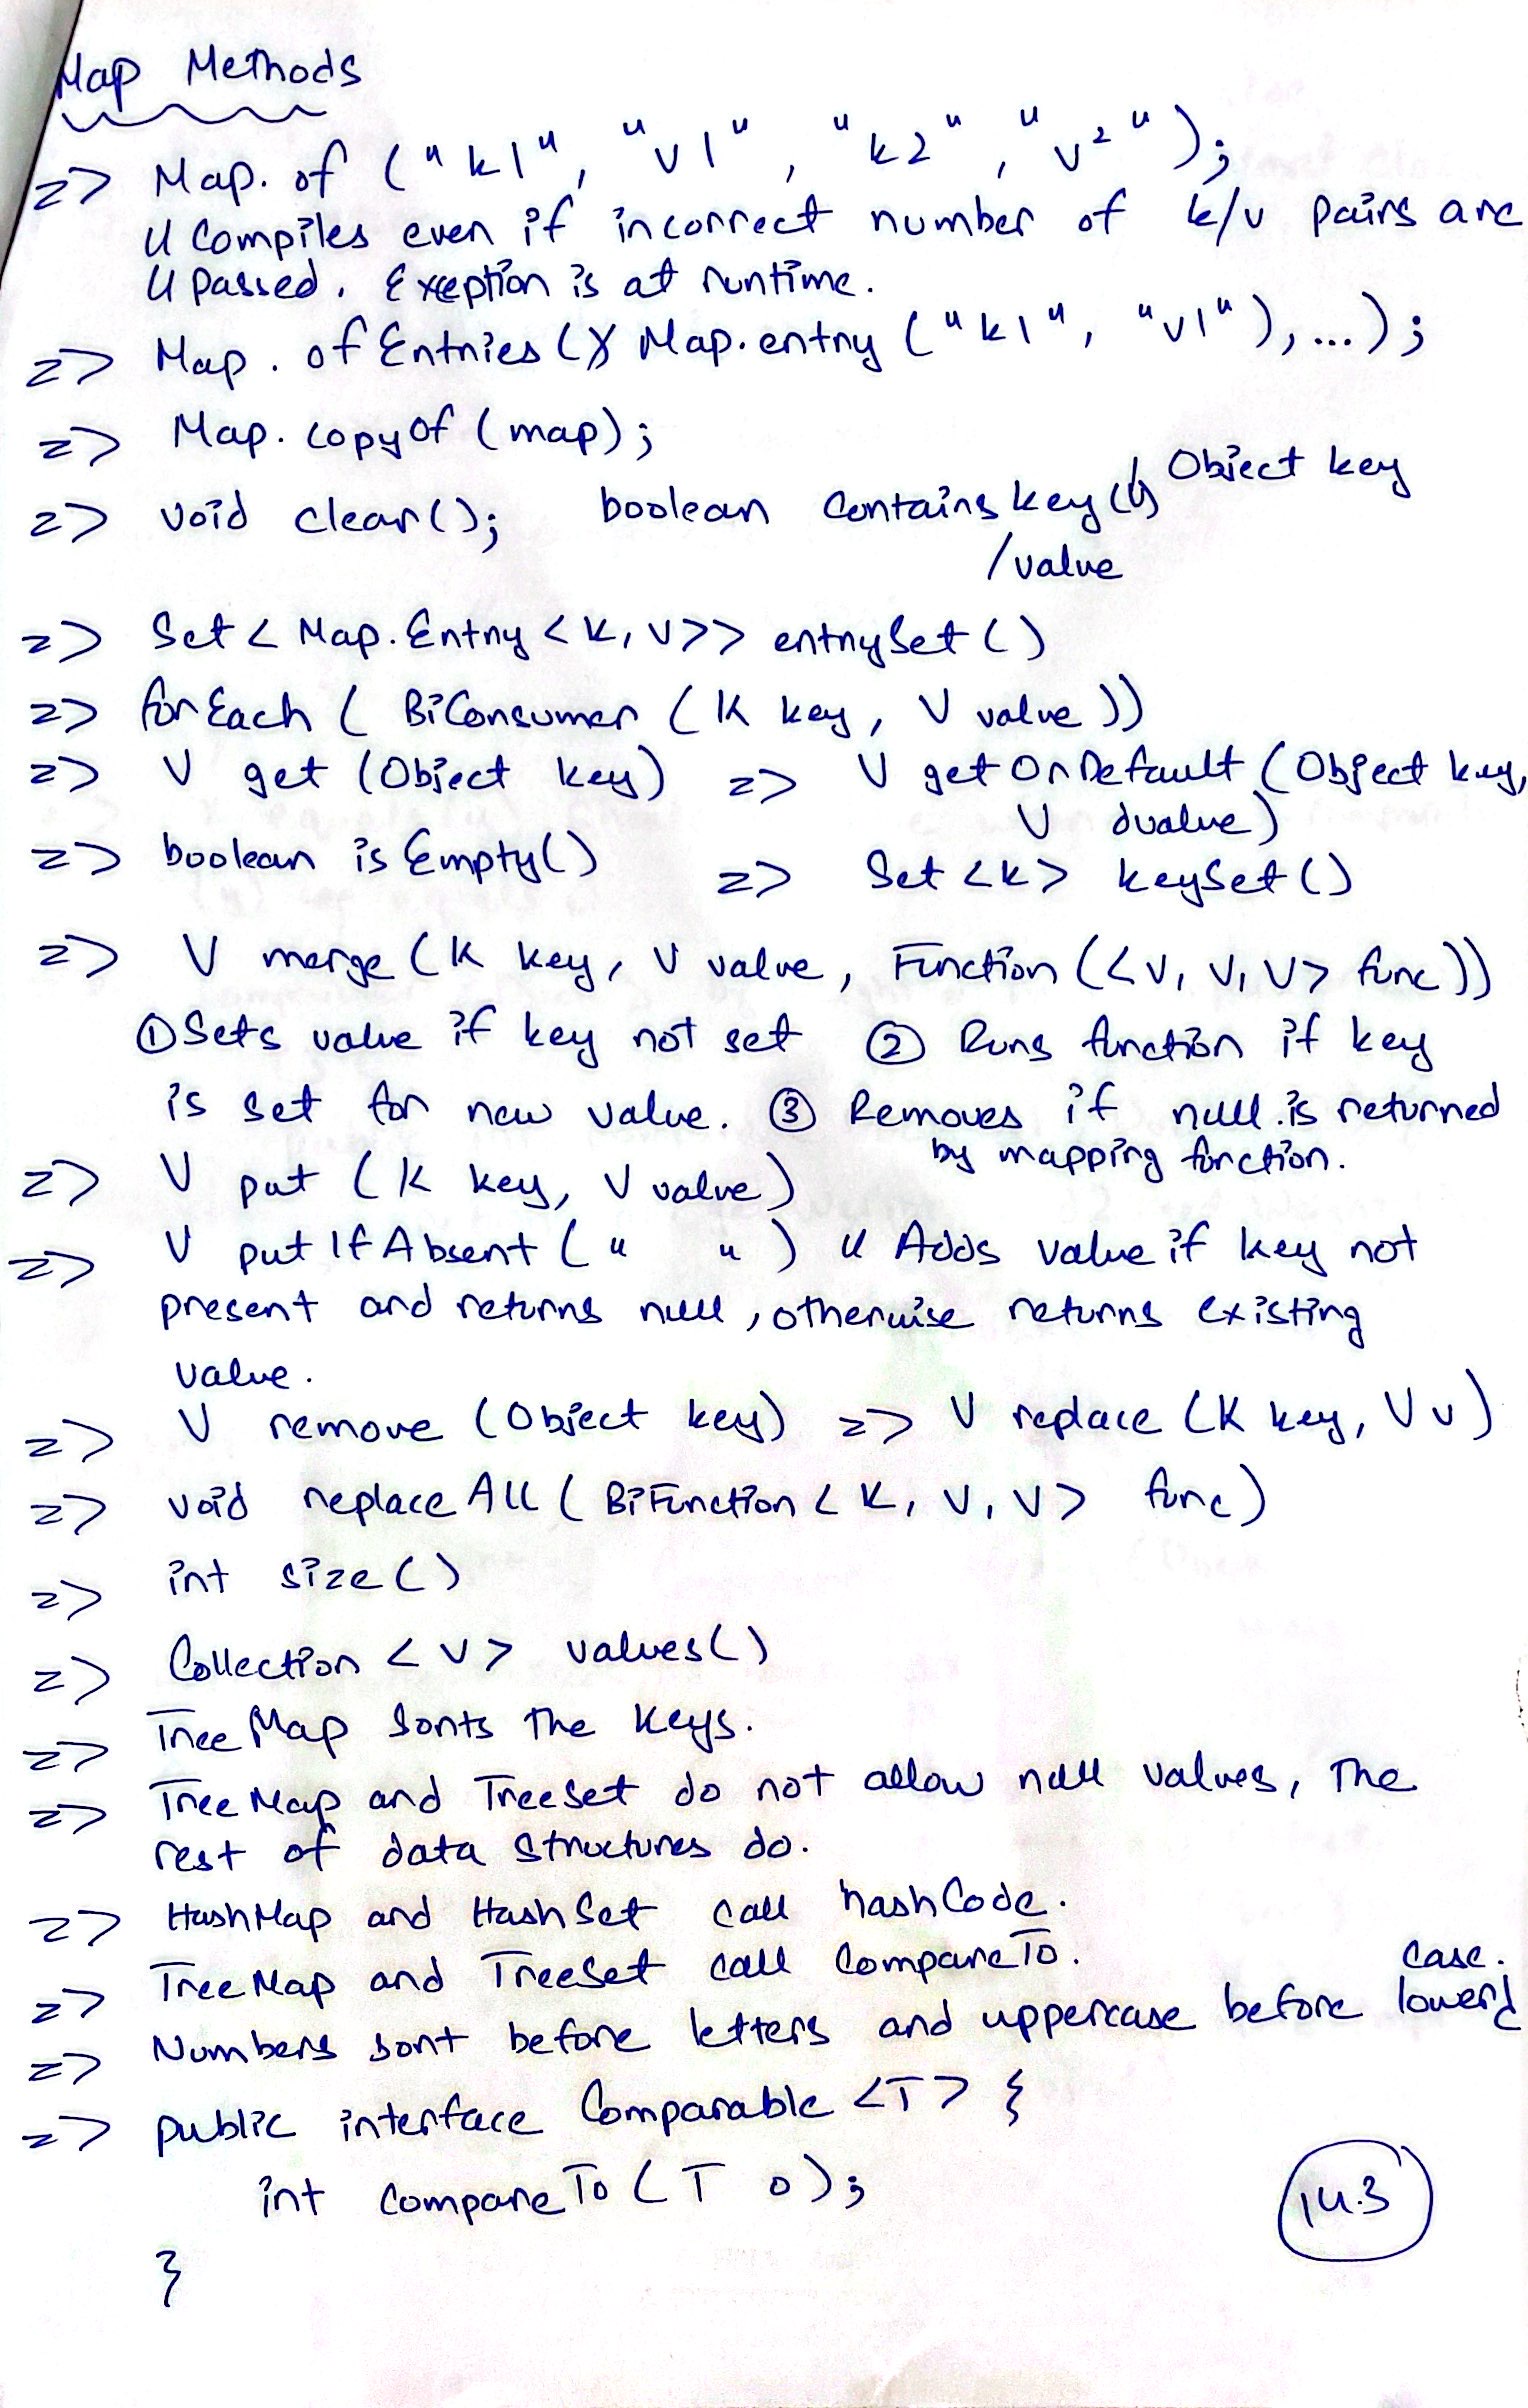 Map Methods
=> Map.of ("k1", "v1", "k2", "v2");
// Compiles even if incorrect number of k/v pairs are
// passed. Exception is at runtime.
=> Map.ofEntries ( Map.entry ("k1", "v1"), ...);
=> Map.copyOf (map);
=> void clear(); boolean contains key () Object key
/value
=> Set < Map.Entry <K, V>> entrySet ()
=> forEach ( BiConsumer (K key, V value ))
=> V get (Object key) => V getOrDefault (Object key,
V dvalue)
=> boolean isEmpty() => Set <K> keySet ()
=> V merge (K key, V value, Function (<V, V, V> func))
① Sets value if key not set ② Runs function if key
is set for new value. ③ Removes if null is returned
by mapping function.
=> V put (K key, V value)
=> V putIfAbsent ( " " ) // Adds value if key not
present and returns null, otherwise returns existing
value.
=> V remove (Object key) => V replace (K key, V v)
=> void replaceAll ( BiFunction < K, V, V > func)
=> int size ()
=> Collection < V > values()
=> TreeMap sorts the keys.
=> TreeMap and TreeSet do not allow null values, the
rest of data structures do.
=> HashMap and HashSet call hashCode.
=> TreeMap and TreeSet call CompareTo.
=> Numbers sort before letters and uppercase before lower
case.
=> public interface Comparable <T> {
int compareTo (T o);
}
14.3